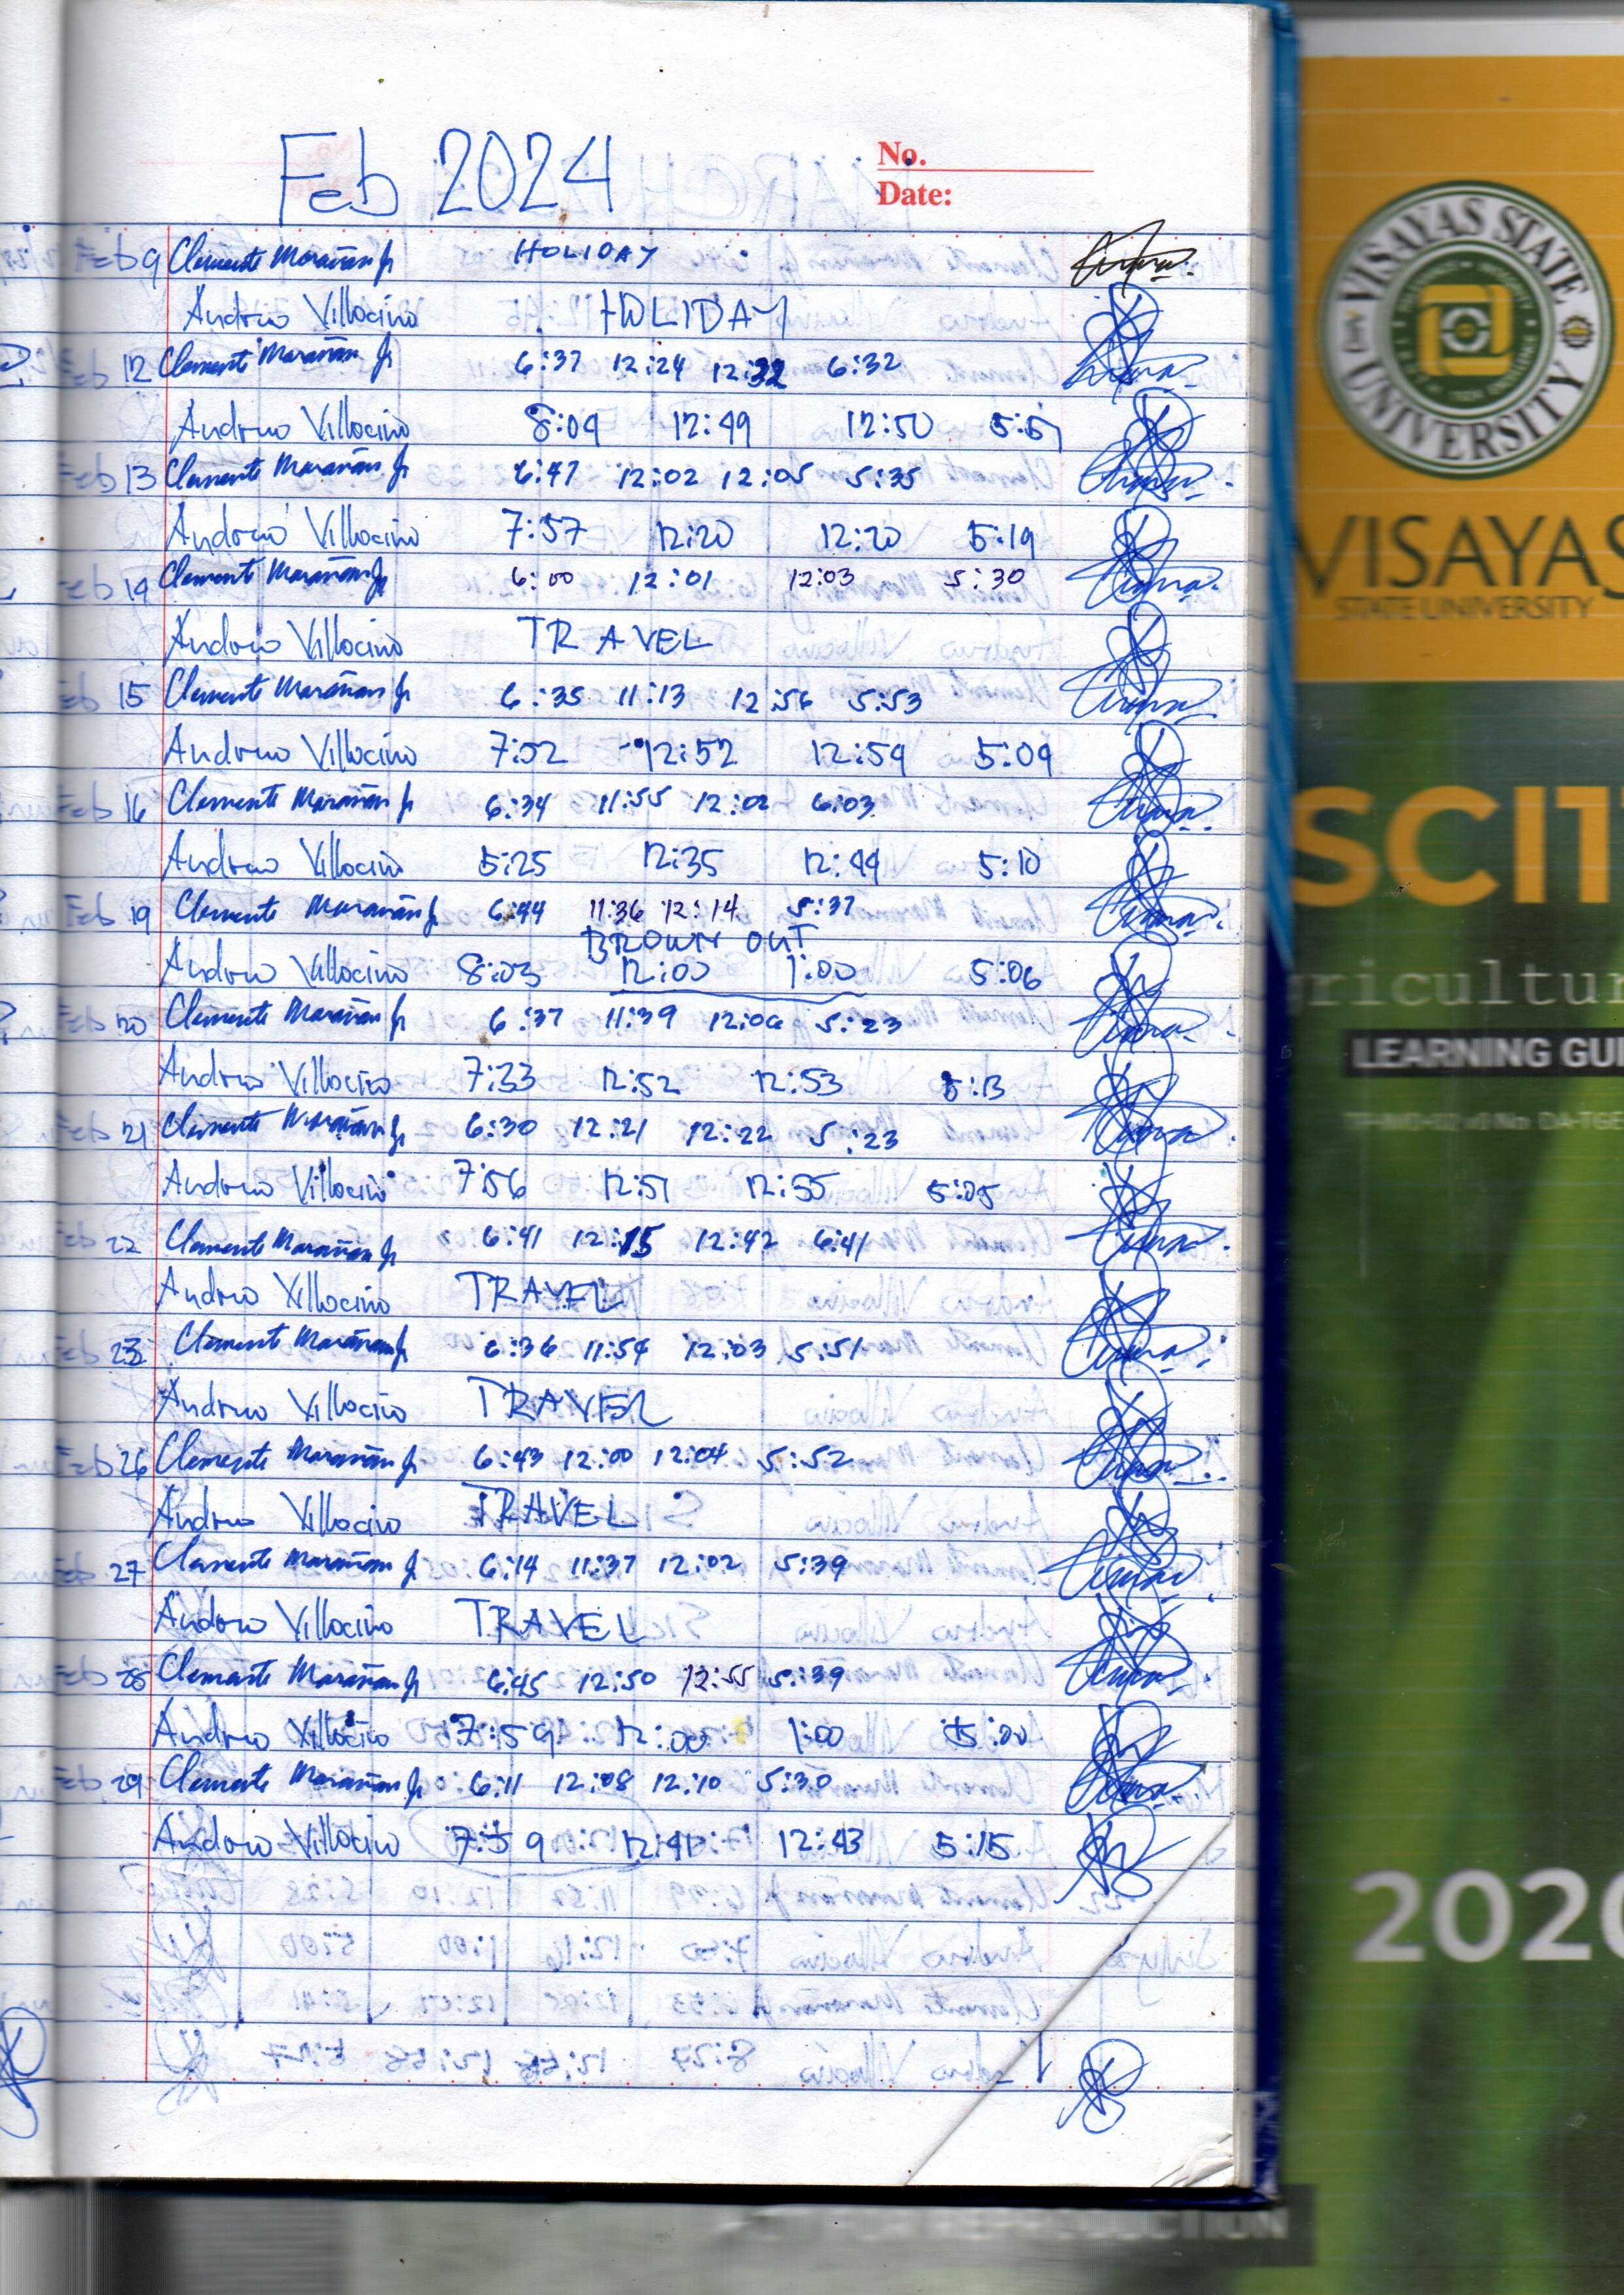 Feb 2024
No.
Date:
Feb 9 Clemente Marañan Jr HOLIDAY
Andrew Villocino HOLIDAY
Feb 12 Clemente Marañan Jr 6:37 12:24 12:32 6:32
Andrew Villocino 8:09 12:49 12:50 5:51
Feb 13 Clemente Marañan Jr 6:47 12:02 12:05 5:35
Andrew Villocino 7:57 12:20 12:20 5:19
Feb 14 Clemente Marañan Jr 6:00 12:01 12:03 5:30
Andrew Villocino TRAVEL
Feb 15 Clemente Marañan Jr 6:35 11:13 12:56 5:53
Andrew Villocino 7:52 12:52 12:59 5:09
Feb 16 Clemente Marañan Jr 6:34 11:55 12:02 6:03
Andrew Villocino 5:25 12:35 12:44 5:10
Feb 19 Clemente Marañan Jr 6:44 11:36 12:14 5:37
BROWN OUT
Andrew Villocino 8:03 12:00 1:00 5:06
Feb 20 Clemente Marañan Jr 6:37 11:39 12:06 5:23
Andrew Villocino 7:33 12:52 12:53 5:13
Feb 21 Clemente Marañan Jr 6:30 12:21 12:22 5:23
Andrew Villocino 7:56 12:51 12:55 5:05
Feb 22 Clemente Marañan Jr 6:41 12:15 12:42 6:41
Andrew Villocino TRAVEL
Feb 23 Clemente Marañan Jr 6:36 11:54 12:03 5:51
Andrew Villocino TRAVEL
Feb 26 Clemente Marañan Jr 6:43 12:00 12:04 5:52
Andrew Villocino TRAVEL
Feb 27 Clemente Marañan Jr 6:14 11:37 12:02 5:39
Andrew Villocino TRAVEL
Feb 28 Clemente Marañan Jr 6:45 12:50 12:55 5:39
Andrew Villocino 7:59 12:00 1:00 5:00
Feb 29 Clemente Marañan Jr 6:11 12:08 12:10 5:30
Andrew Villocino 7:59 12:41 12:43 5:15
VISAYAS STATE UNIVERSITY
VISAYAS
STATE UNIVERSITY
SCIT
gricultur
LEARNING GUI
2020
REPRODUCTION